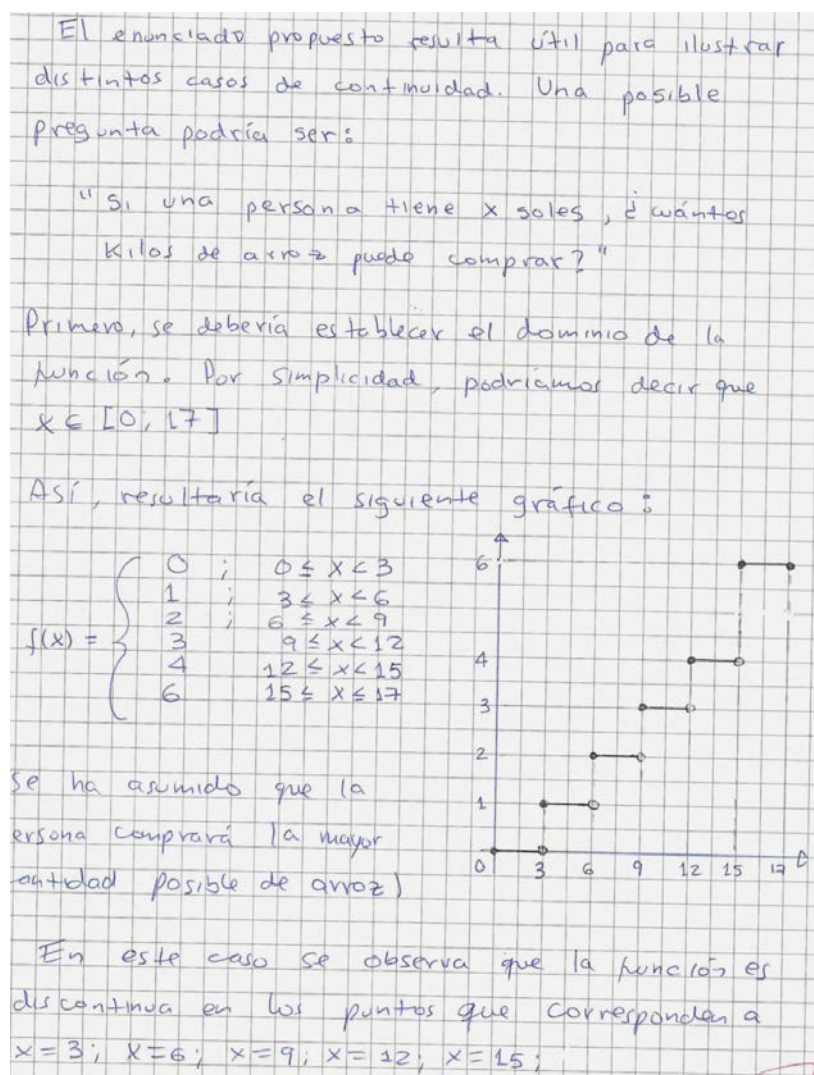 El enunciado propuesto resulta útil para ilustrar
distintos casos de continuidad. Una posible
pregunta podría ser:
"Si una persona tiene x soles, ¿cuántos
Kilos de arroz puede comprar?"
Primero, se debería establecer el dominio de la
función. Por simplicidad, podríamos decir que
x ∈ [0; 17]
Así, resultaría el siguiente gráfico:
f(x) =
0 ; 0 ≤ x < 3
1 ; 3 ≤ x < 6
2 ; 6 ≤ x < 9
3 9 ≤ x < 12
4 12 ≤ x < 15
6 15 ≤ x ≤ 17
6
4
3
2
1
0 3 6 9 12 15 17
se ha asumido que la
ersona comprará la mayor
antidad posible de arroz)
En este caso se observa que la función es
discontinua en los puntos que corresponden a
x = 3; x = 6; x = 9; x = 12; x = 15;